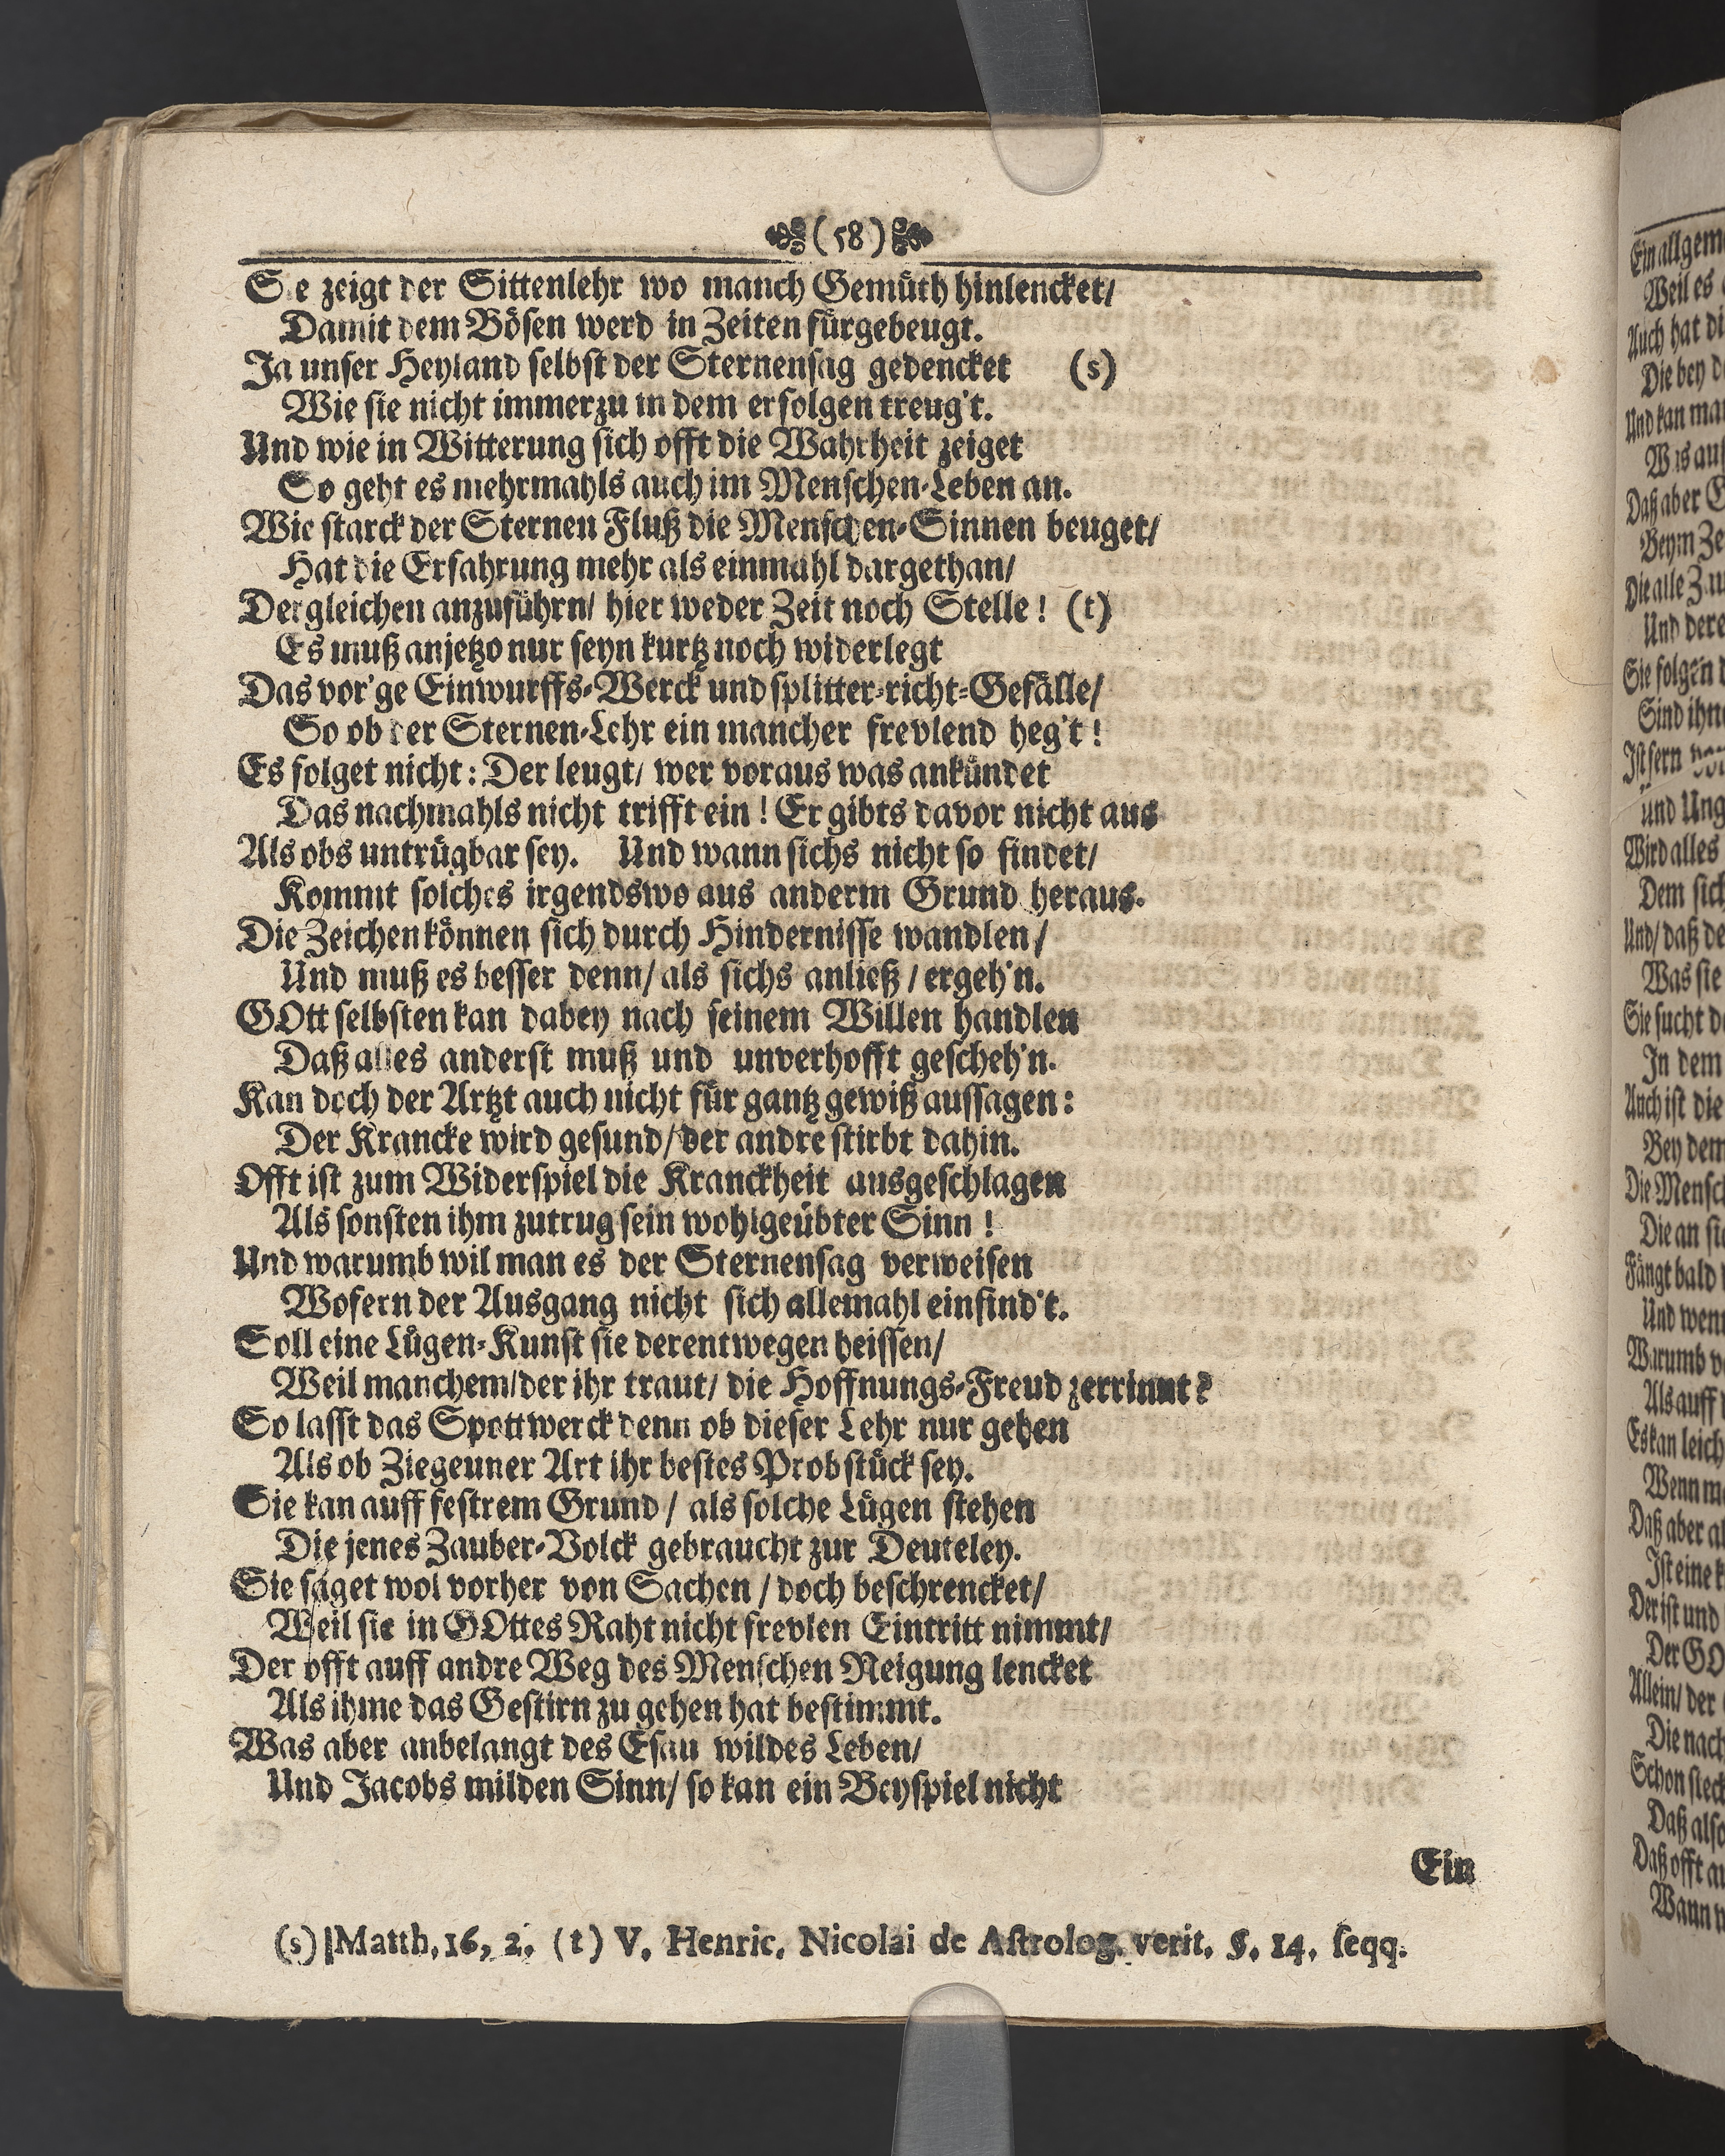 (58)
Sie zeigt der Sittenlehr wo manch Gemüth hinlencket/
Damit dem Bösen werd in Zeiten fürgebeugt.
Ja unser Heyland selbst der Sternensag gedencket (s)
Wie sie nicht immerzu in dem erfolgen treug't.
Und wie in Witterung sich offt die Wahrheit zeiget
So geht es mehrmahls auch im Menschen-Leben an.
Wie starck der Sternen Fluß die Menschen-Sinnen beuget/
Hat die Erfahrung mehr als einmahl dargethan/
Dergleichen anzuführn/ hier weder Zeit noch Stelle! (t)
Es muß anjetzo nur seyn kurtz noch widerlegt
Das vor'ge Einwurffs-Werck und splitter-richt-Gefälle/
So ob der Sternen-Lehr ein mancher frevlend heg't!
Es folget nicht: Der leugt/ wer voraus was ankündet
Das nachmahls nicht trifft ein! Er gibts davor nicht aus
Als obs untrügbar sey. Und wann sichs nicht so findet/
Kommt solches irgendswo aus anderm Grund heraus.
Die Zeichen können sich durch Hindernisse wandlen/
Und muß es besser denn/ als sichs anließ/ ergeh'n.
GOtt selbsten kan dabey nach seinem Willen handlen
Daß alles anderst muß und unverhofft gescheh'n.
Kan doch der Artzt auch nicht für gantz gewiß aussagen:
Der Krancke wird gesund/ der andre stirbt dahin.
Offt ist zum Widerspiel die Kranckheit ausgeschlagen
Als sonsten ihm zutrug sein wohlgeübter Sinn!
Und warumb wil man es der Sternensag verweisen
Wofern der Ausgang nicht sich allemahl einfind't.
Soll eine Lügen-Kunst sie derentwegen heissen/
Weil manchem/der ihr traut/ die Hoffnungs-Freud zerrinnt?
So lasst das Spottwerck denn ob dieser Lehr nur gehen
Als ob Ziegeuner Art ihr bestes Probstück sey.
Sie kan auff festrem Grund/ als solche Lügen stehen
Die jenes Zauber-Volck gebraucht zur Deuteley.
Sie saget wol vorher von Sachen/ doch beschrencket/
Weil sie in GOttes Raht nicht frevlen Eintritt nimmt/
Der offt auff andre Weg des Menschen Neigung lencket
Als ihme das Gestirn zu gehen hat bestimmt.
Was aber anbelangt des Esau wildes Leben/
Und Jacobs milden Sinn/ so kan ein Beyspiel nicht
Ein
(s) Matth. 16, 2. (t) V. Henric. Nicolai de Astrolog. verit. §. 14. seqq.
Ein allgem
Weil es
Auch hat di
Die bey d
Und kan man
Was au
Daß aber
Beym Ze
Die alle
Und dere
Sie folgen
Sind ihn
Ist fern
und Ung
Wird alles
Dem sich
Und/ daß de
Was sie
Sie sucht d
In dem
Auch ist die
Bey dem
Die Mensc
Die an si
Fängt bald
Und wen
Warumb
Als auff
Es kan leich
Wenn m
Daß aber al
Ist eine k
Der ist und
Der GO
Allein/ der
Die nach
Schon steck
Daß also
Daß offt
Wann